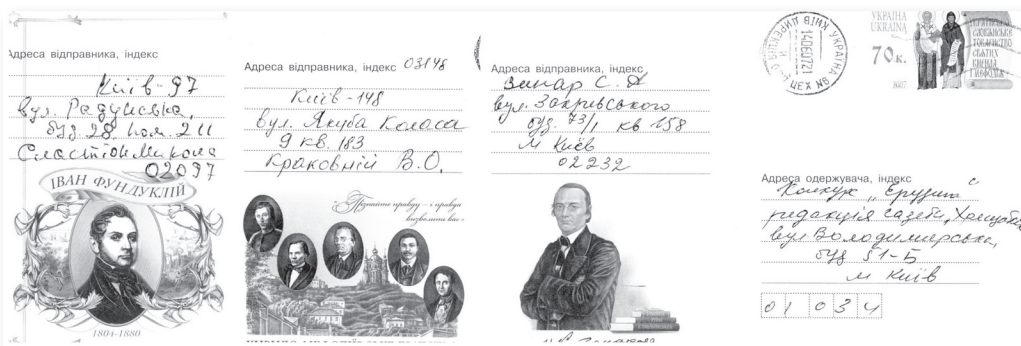 Адреса відправника, індекс
Київ-97
вул. Радунська,
буд. 28. пом. 211
Сластіон Микола
02097
ІВАН ФУНДУКЛІЙ
1804-1880
Адреса відправника, індекс 03148
Київ-148
вул. Якуба Коласа
9 кв. 183
Краковній В.О.
Пізнайте правду – і правда
визволить вас
Адреса відправника, індекс
Винар С. А
вул. Закревського
буд. 73/1 кв 158
м Київ
02232
УКРАЇНА
UKRAINA
70к.
2007
КИЇВ УКРАЇНА
ЦЕХ №8
Адреса одержувача, індекс
Конкурс „Ерудит“
редакція газети „
вул Володимирська,
буд 51-Б
м Київ
01034